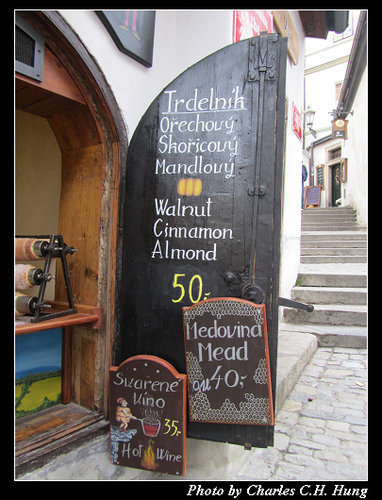 Trdelník
Ořechový
Skořicový
Mandlový
Walnut
Cinnamon
Almond
50,-
Medovina
Mead
40,-
Svařené
Víno
35,-
Hot Wine
Photo by Charles C.H. Hung